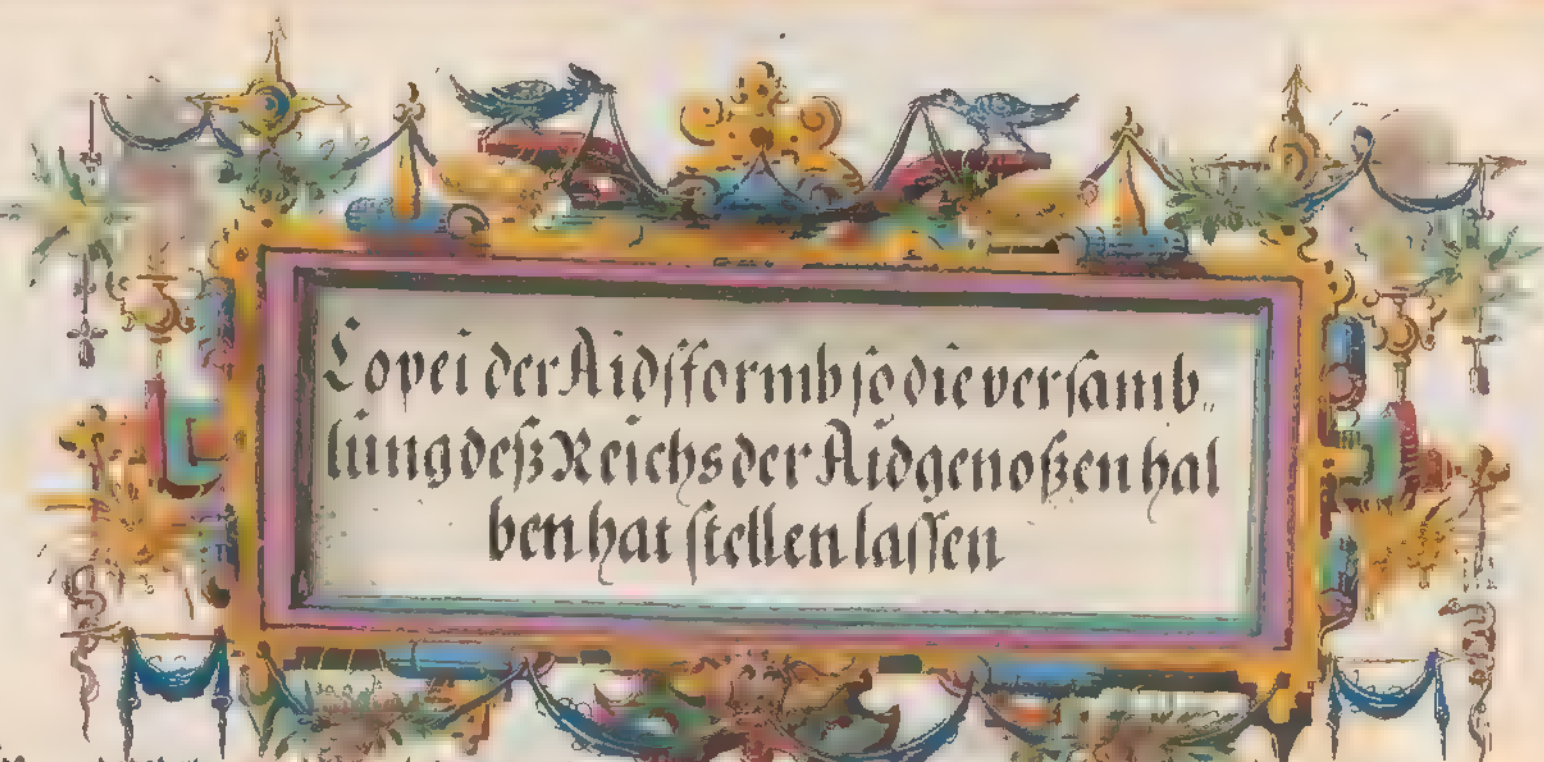 Copei der Aidsformb so die versamb„
lung deß Reichs der Aidgenoßen hal
ben hat stellen lassen